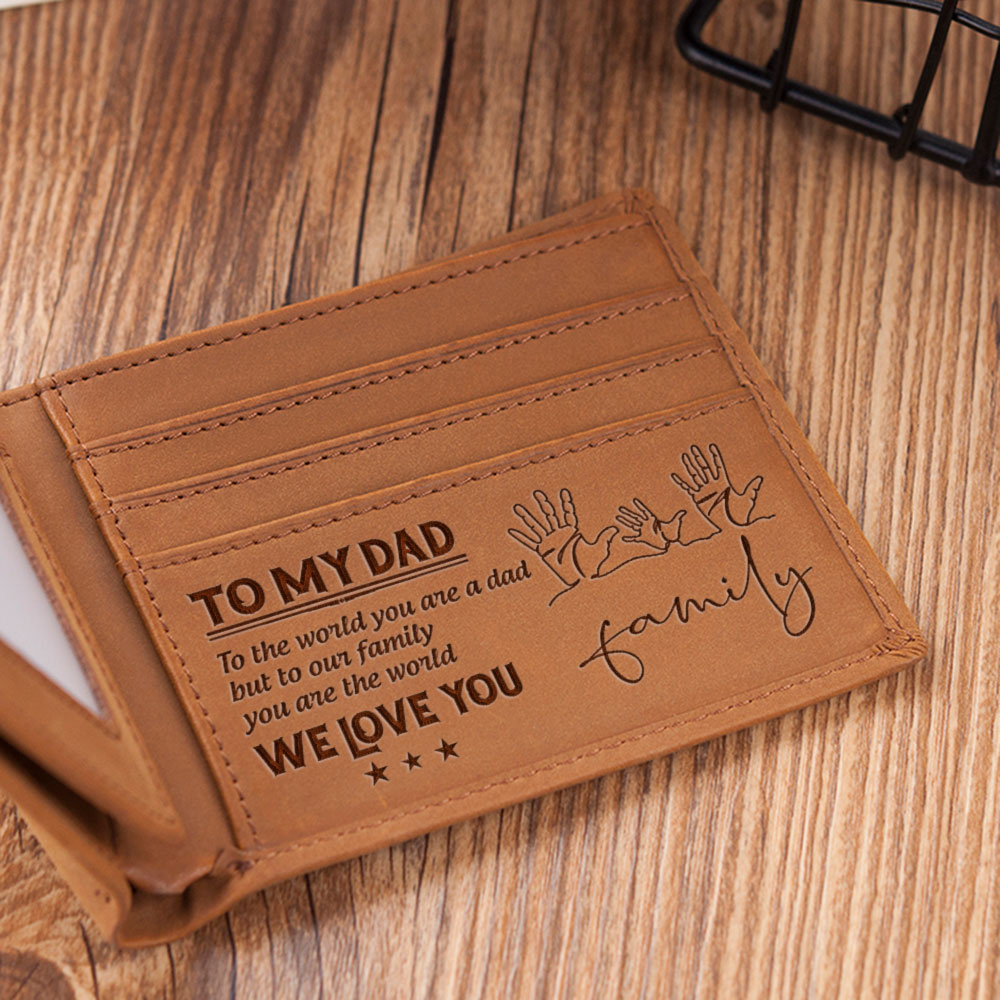 TO MY DAD
To the world you are a dad
but to our family
you are the world
WE LOVE YOU
family